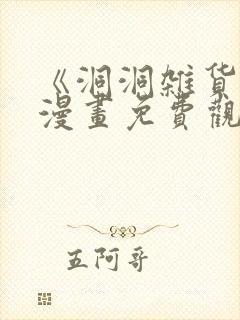 《洞洞雑货
漫畫免費觀
五阿哥